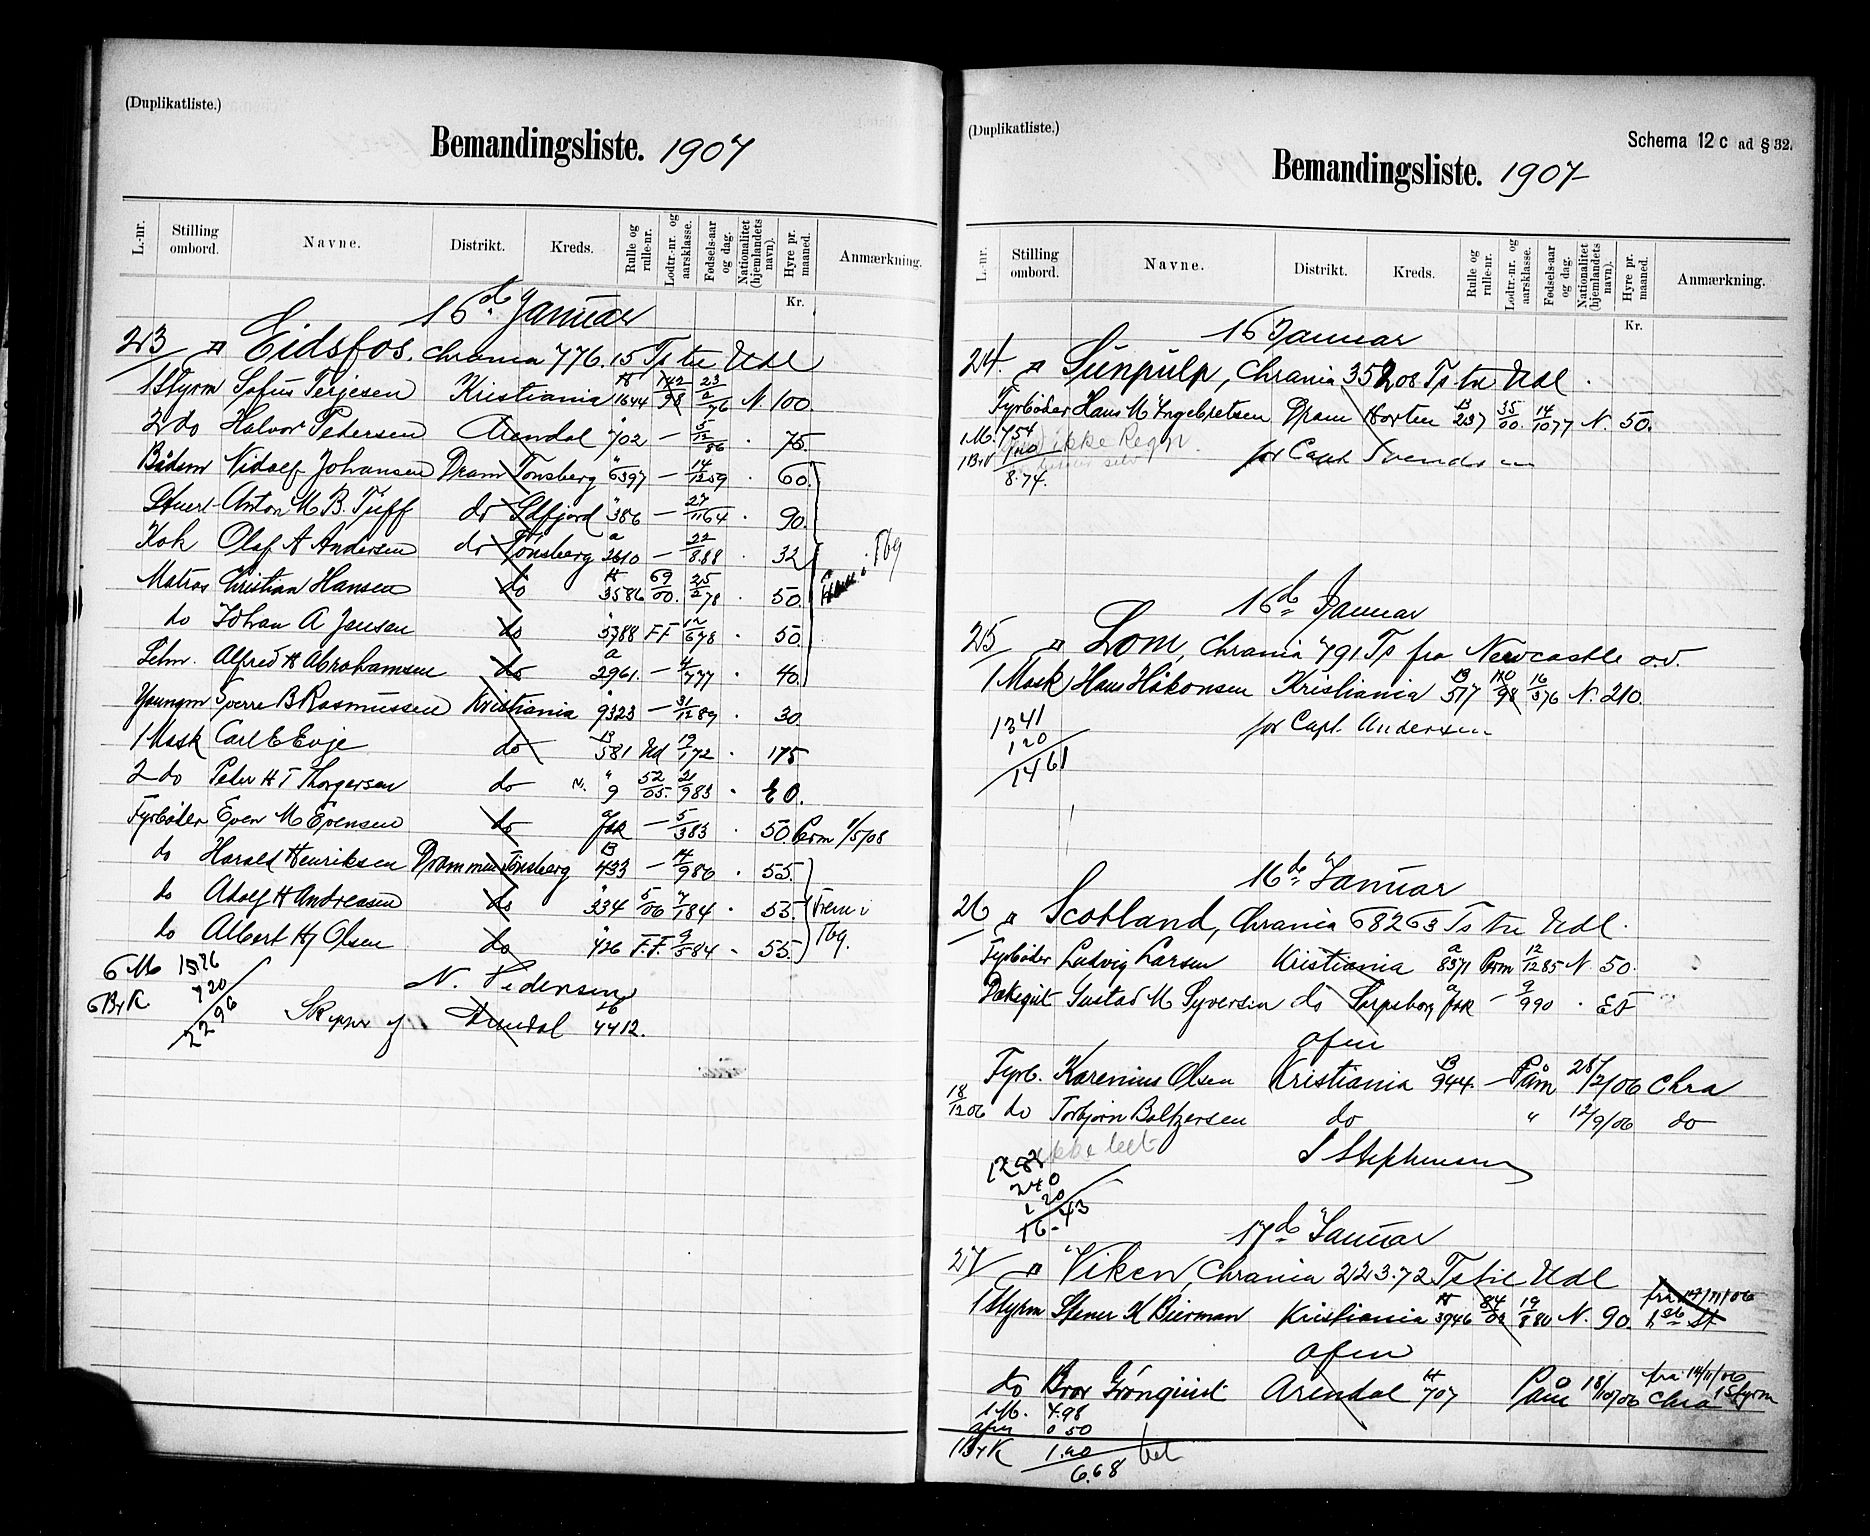 (Duplikatliste.)
Bemandingsliste. 1907
L.-nr. Stilling ombord. Navne. Distrikt. Kreds. Rulle og rulle-nr. Lodtr.-nr. og aarsklasse. Fødsels-aar og dag. Nationalitet (hjemlandets navn). Hyre pr. maaned. Anmærkning.
Kr.
16de Januar
23 Eidsfos. Chrania 776.15 Ts til Udl
1 Styrm Sofus Terjesen Kristiania 1644 142/98 23/2 76 N. 100.
2 do Halvor Pedersen Arendal " 702 — 5/12 86 . 75.
Bådsm Nidolf Johansen Dram Tønsberg " 6397 — 14/12 59 . 60.
Stuert Anton M B. Tuff do Sdfjord " 386 — 27/11 64 . 90.
Kok Olaf A Andersen do Tønsberg a 2610 — 22/8 88 . 32
Matros Christian Hansen do 3586 69/00. 25/2 78 . 50.
do Johan A Jensen do " 5788 F.F. 12/6 78 . 50.
Letm. Alfred H Abrahamsen do a 2961. — 4/7 77 . 40.
Youngm Sverre B Rasmussen Kristiania " 9323 — 31/12 89 . 30.
1 Mask Carl E Evje do B 581 Ud 12/1 72 . 175
2 do Peter H T Thorgersen do N. " 9 52/05. 21/9 83 .
Fyrbøder Even M Evensen do — 5/3 83 . 50
do Harald Henriksen Drammen Tønsberg B 433 — 14/9 86 . 55.
do Adolf H Andreasen do " 334 5/06 7/1 84 . 55. Frem i
do Albert Hj Olsen do " 426 F.F. 9/5 84 . 55. Tbg.
6 M 15.76
6 BrK 7 20
22 96
N. Pedersen
Skipper af Arendal 4412.
(Duplikatliste.)
Schema 12 c ad § 32.
Bemandingsliste. 1907
L.-nr. Stilling ombord. Navne. Distrikt. Kreds. Rulle og rulle-nr. Lodtr.-nr. og aarsklasse. Fødsels-aar og dag. Nationalitet (hjemlandets navn). Hyre pr. maaned. Anmærkning.
Kr.
16 Januar
24. Sunpulp, Chrania 352 08 Ts til Udl.
Fyrbøder Hans M Ingebretsen Dram Horten B 237 35/00. 14/10 77 N. 50.
1 M. 7 54 ikke
1 20
8.74.
for Capt Svendsen
16de Januar
25 Lom, Chrania 791 Ts fra Newcastle o.v.
1 Mask Hans Håkonsen Kristiania B 517 110/98 16/3 76 N. 210.
13 41
1 20
14 61
for Capt. Andersen
16de Januar
26 Scotland, Chrania 682 63 Ts til Udl.
Fyrbøder Ludvig Larsen Kristiania a 8371 12/12 85 N. 50.
Dæksgut Gustav M Syversen do Sarpsborg — 9/9 90 .
afm
Fyrb. Karenius Olsen Kristiania B 944. — Påm 28/2/06 Chra
18/12 06 do Torbjørn Baltzersen do " 12/9/06 do
S Stephensen
2 40
1 20
16.43
17de Januar
27 Viken, Chrania 223.72 Ts til Udl
1 Styrm Stener K Bierman Kristiania H 3946 84/02 19/8 80 N. 90. fra 17/11/06
afm
do Bror Grönquist Arendal H 707 Påm 18/10/06 Chra fra 14/11/06 1 Styrm
1 M. 4.98
afm 0 50
1 BrK 1.20
6.68 bet